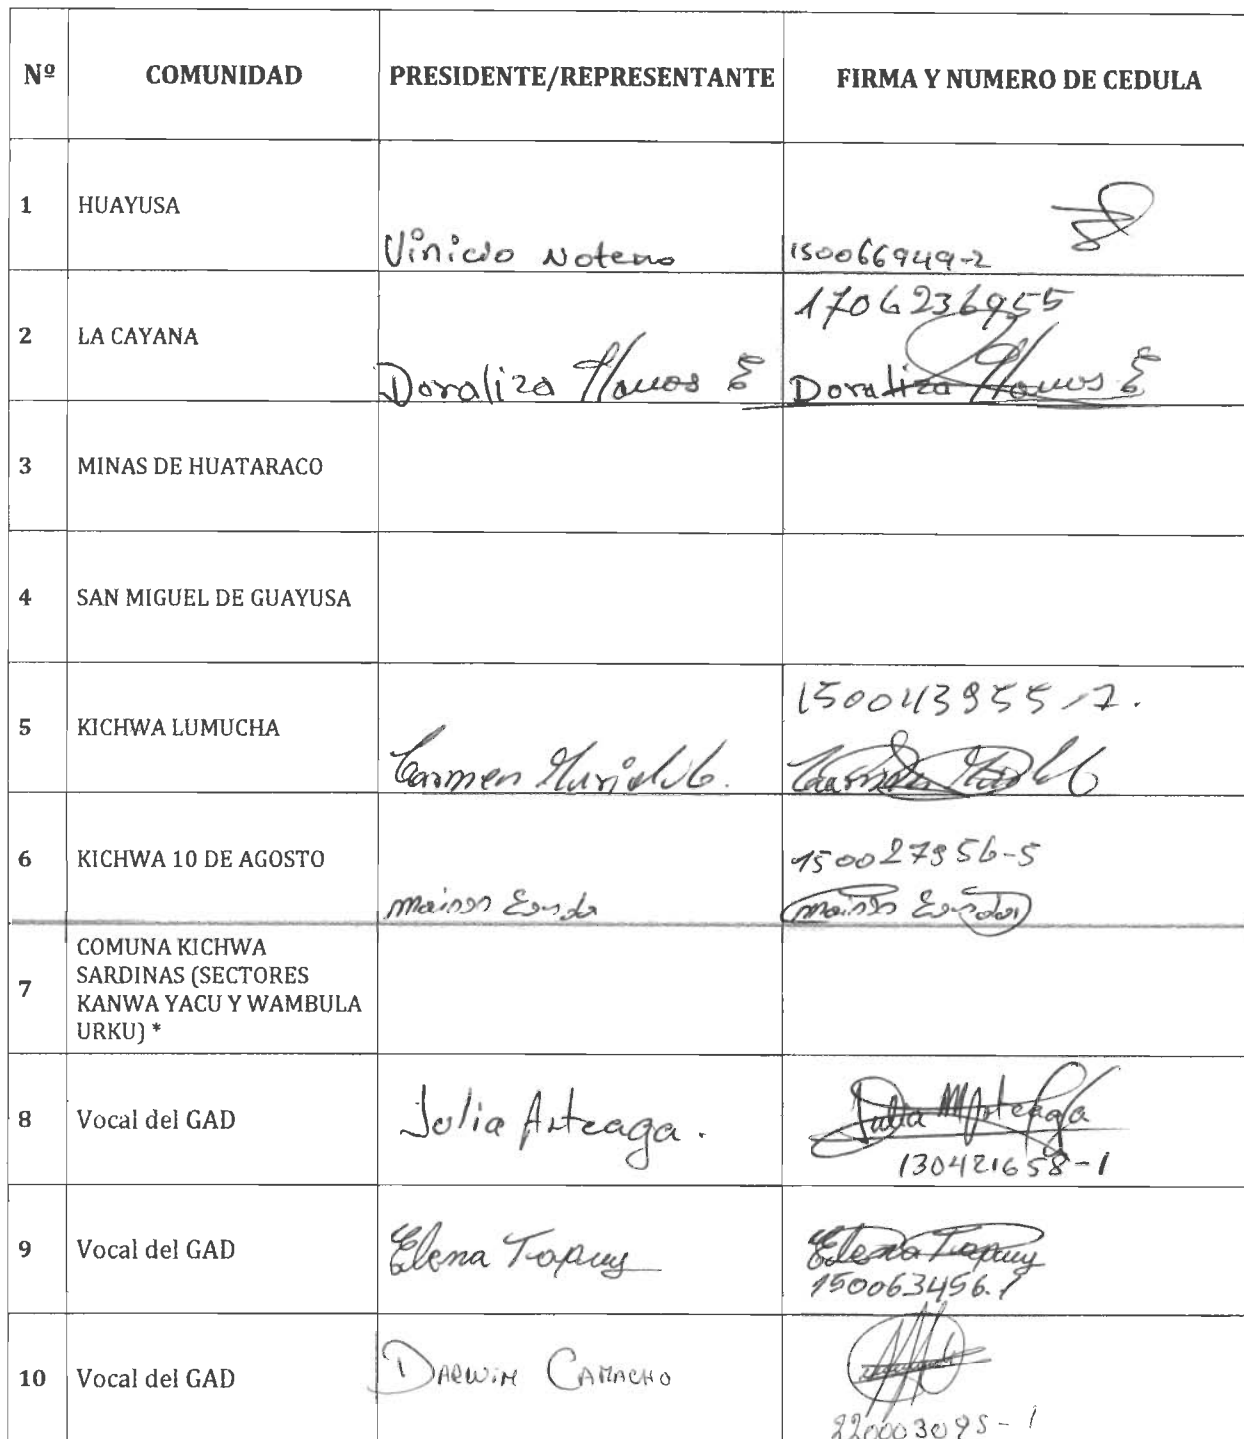 Nº COMUNIDAD PRESIDENTE/REPRESENTANTE FIRMA Y NUMERO DE CEDULA
1 HUAYUSA Vinicio Noteno 150066949-2
1706236955
2 LA CAYANA Doraliza Llanos E Doraliza Llanos E
3 MINAS DE HUATARACO
4 SAN MIGUEL DE GUAYUSA
150043955-7.
5 KICHWA LUMUCHA Carmen
6 KICHWA 10 DE AGOSTO 150027956-5
COMUNA KICHWA
SARDINAS (SECTORES
7
KANWA YACU Y WAMBULA
URKU) *
8 Vocal del GAD Julia Arteaga. Julia M Arteaga
130421658-1
9 Vocal del GAD Elena Tapuy Elena Tapuy
150063456.1
10 Vocal del GAD DARWIN CAMACHO
220003095-1